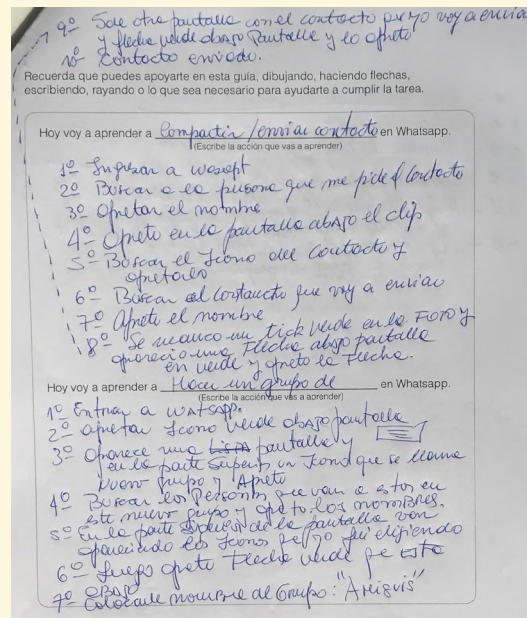 9º Sale otra pantalla con el contacto que yo voy a enviar
y flecha verde abajo Pantalla y lo apreto
10º Contacto enviado.
Recuerda que puedes apoyarte en esta guía, dibujando, haciendo flechas,
escribiendo, rayando o lo que sea necesario para ayudarte a cumplir la tarea.
Hoy voy a aprender a Compartir/enviar contacto en Whatsapp.
(Escribe la acción que vas a aprender)
1º Ingresar a
2º Buscar a la persona que me pide el contacto
3º Apretar el nombre
4º Apreto en la pantalla abajo el clip
5º Buscar el Icono del Contacto y
apretarlo
6º Buscar el que voy a enviar
7º Apreto el nombre
8º Se marco un tick verde en la FOTO y
aparecio una Flecha abajo pantalla
en verde y apreto la Flecha.
Hoy voy a aprender a Hacer un grupo de en Whatsapp.
(Escribe la acción que vas a aprender)
1º Entrar a WATSAPP.
2º apretar Icono verde abajo pantalla
3º Aparece una pantalla y
en la parte Superi un Icono que se llama
nuevo grupo y Apreto
4º Buscar las Personas que van a estar en
este nuevo grupo y apreto los nombres.
5º En la parte de la pantalla van
apareciendo los Iconos que yo fui eligiendo
6º Luego apreto Flecha verde que esta
abajo
7º Colocarle nombre al Grupo: "Amiguis"